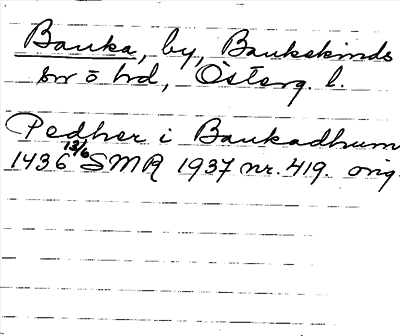 Bauka, by, Baukekinds
sn o hd, Österg. l.
Pedher i Baukadhum
1436 13/6 SMR 1937 nr. 419. orig.